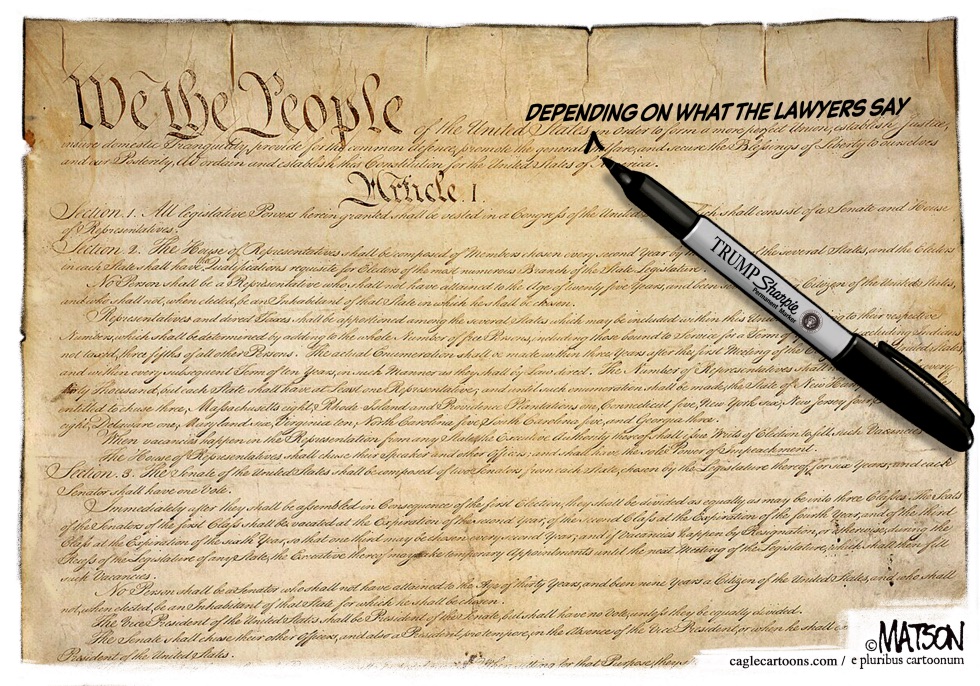 DEPENDING ON WHAT THE LAWYERS SAY
We the People of the United States in Order to form a more perfect Union, establish Justice,
insure domestic Tranquility, provide for the common defence, promote the general and secure the Blessings of Liberty to ourselves
and our Posterity, do ordain and establish this Constitution for the United States of
Article. I.
Section. 1. All legislative Powers herein granted shall be vested in a Congress of the United which shall consist of a Senate and House
of Representatives.
Section. 2. The House of Representatives shall be composed of Members chosen every second Year by the several States, and the Electors
in each State shall have the Qualifications requisite for Electors of the most numerous Branch of the State Legislature.
No Person shall be a Representative who shall not have attained to the Age of twenty five Years, and been Citizen of the United States,
and who shall not, when elected, be an Inhabitant of that State in which he shall be chosen.
Representatives and direct Taxes shall be apportioned among the several States which may be included within this to their respective
Numbers, which shall be determined by adding to the whole Number of free Persons, including those bound to Service for a Term of excluding Indians
not taxed, three fifths of all other Persons. The actual Enumeration shall be made within three Years after the first Meeting of the States,
and within every subsequent Term of ten Years, in such Manner as they shall by Law direct. The Number of Representatives shall every
thirty Thousand, but each State shall have at Least one Representative; and until such enumeration shall be made, the State of New
entitled to chuse three, Massachusetts eight, Rhode Island and Providence Plantations one, Connecticut five, New York six, New Jersey four,
eight, Delaware one, Maryland six, Virginia ten, North Carolina five, South Carolina five, and Georgia three.
When vacancies happen in the Representation from any State, the Executive Authority thereof shall issue Writs of Election to fill such Vacancies.
The House of Representatives shall chuse their Speaker and other Officers; and shall have the sole Power of Impeachment.
Section. 3. The Senate of the United States shall be composed of two Senators from each State, chosen by the Legislature thereof, for six Years; and each
Senator shall have one Vote.
Immediately after they shall be assembled in Consequence of the first Election, they shall be divided as equally as may be into three Classes. The Seats
of the Senators of the first Class shall be vacated at the Expiration of the second Year, of the second Class at the Expiration of the fourth Year, and of the third
Class at the Expiration of the sixth Year, so that one third may be chosen every second Year; and if Vacancies happen by Resignation, or otherwise, during the
Recess of the Legislature of any State, the Executive thereof may make temporary Appointments until the next Meeting of the Legislature, which shall then fill
such Vacancies.
No Person shall be a Senator who shall not have attained to the Age of thirty Years, and been nine Years a Citizen of the United States, and who shall
not, when elected, be an Inhabitant of that State for which he shall be chosen.
The Vice President of the United States shall be President of the Senate, but shall have no Vote, unless they be equally divided.
The Senate shall chuse their other Officers, and also a President pro tempore, in the Absence of the Vice President, or when he shall
President of the United States.
When sitting for that Purpose, they
TRUMP Sharpie
Permanent Marker
© MATSON
caglecartoons.com / e pluribus cartoonum